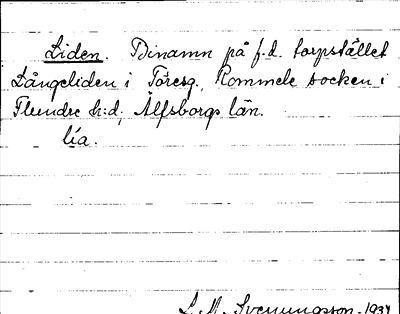 Liden. Binamn på f.d. torpstället
Långeliden i Töresg., Rommele socken i
Flundre h:d, Älfsborgs län.
lía.
S. M. Svenungsson. 1934